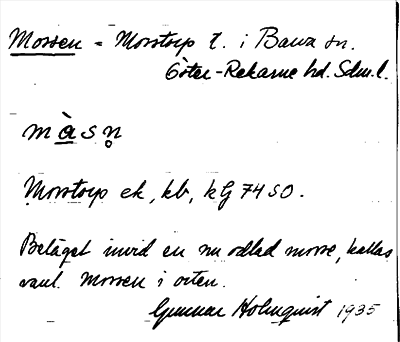 Mossen = Morstorp t. i Barva sn.
Öster-Rekarne hd. Sdm.l.
m à s n̥
Morstorp ek, kb, kG 74 SO.
Beläget invid en nu odlad mosse, kallas
vanl. Mossen i orten.
Gunnar Holmquist 1935